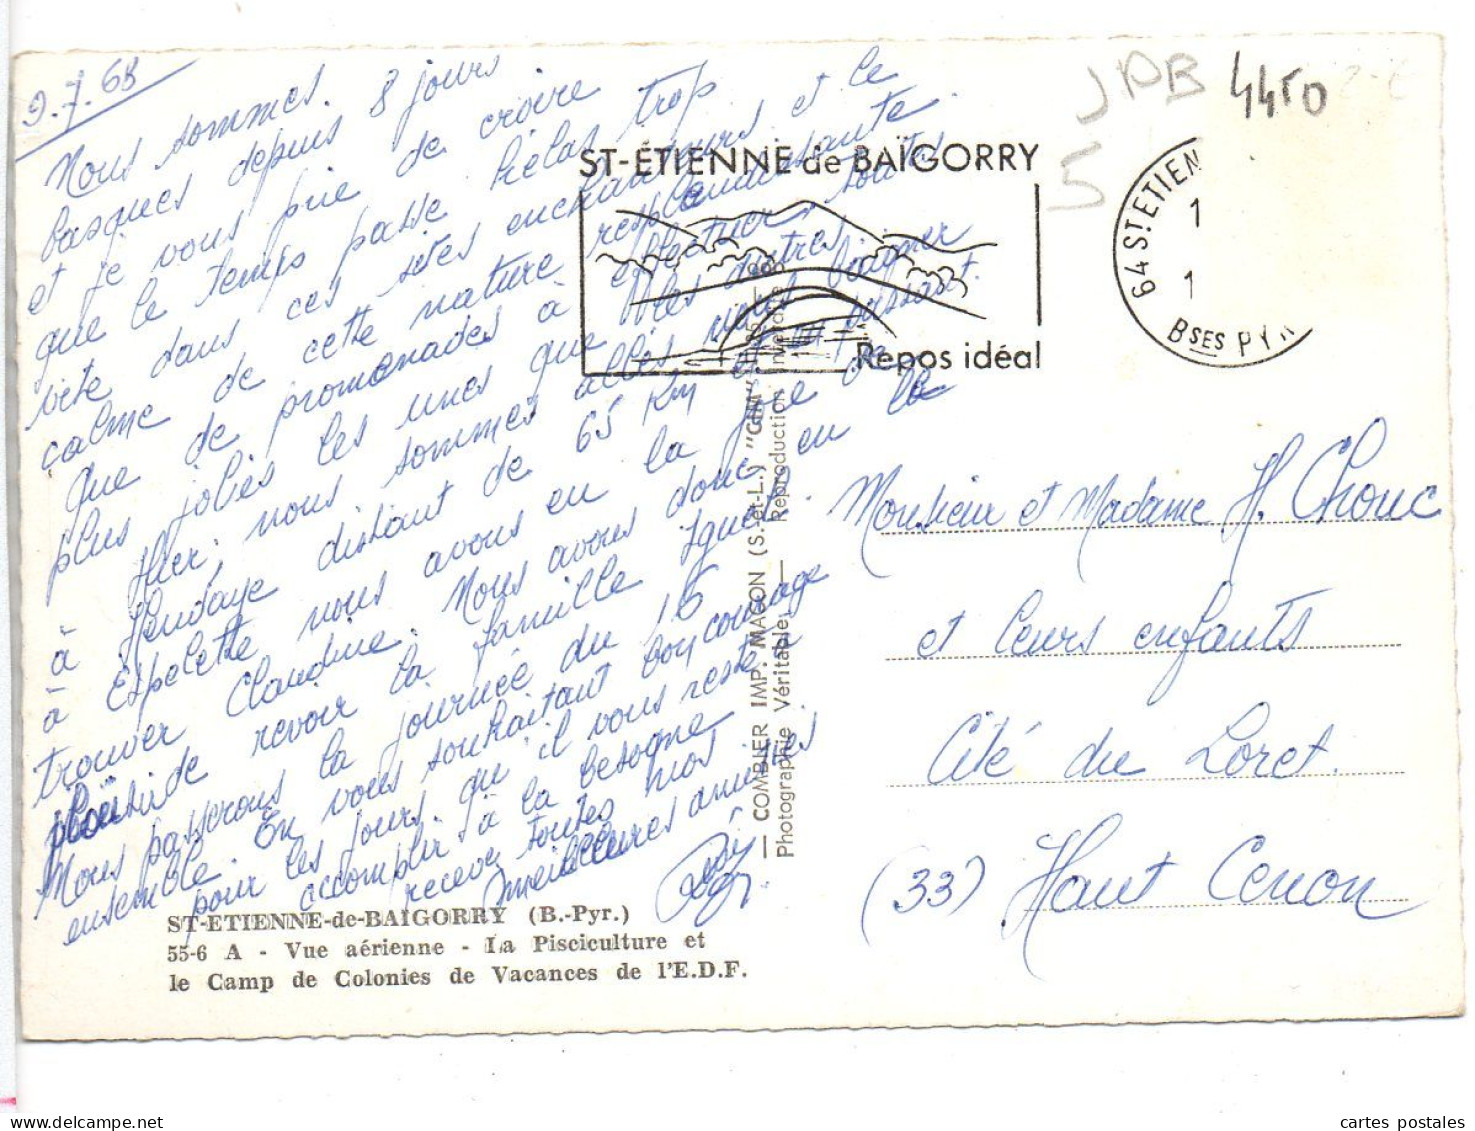 9.7.68
Nous sommes
basques depuis 8 jours
et je vous prie de croire
que le temps passe hélas trop
vite dans ces sites enchanteurs et le
calme de cette nature resplendissante
Que de promenades à effectuer, toutes
plus jolies les unes que les autres
Hier, nous sommes allés nous baigner
à Hendaye distant de 65 Km et en passant
à Espelette nous avons eu la joie de
trouver Claudine. Nous avons donc eu le
plaisir de revoir la famille
Nous passerons la journée du 15
ensemble. En vous souhaitant bon courage
pour les jours qu'il vous reste à
accomplir à la besogne
recevez toutes nos
meilleures amitiés
ST-ETIENNE-de-BAÏGORRY (B.-Pyr.)
55-6 A - Vue aérienne - La Pisciculture et
le Camp de Colonies de Vacances de l'E.D.F.
— COMBIER IMP. MACON (S.-et-L.) "CIM"
Photographie Véritable — Reproduction interdite
ST-ÉTIENNE de BAÏGORRY
Repos idéal
64 ST ETIEN
1
1
BSES PYR
JPB
4450
5
Monsieur et Madame H. Chouc
et leurs enfants
Cité du Loret.
(33) Haut Cenon
cartes postales